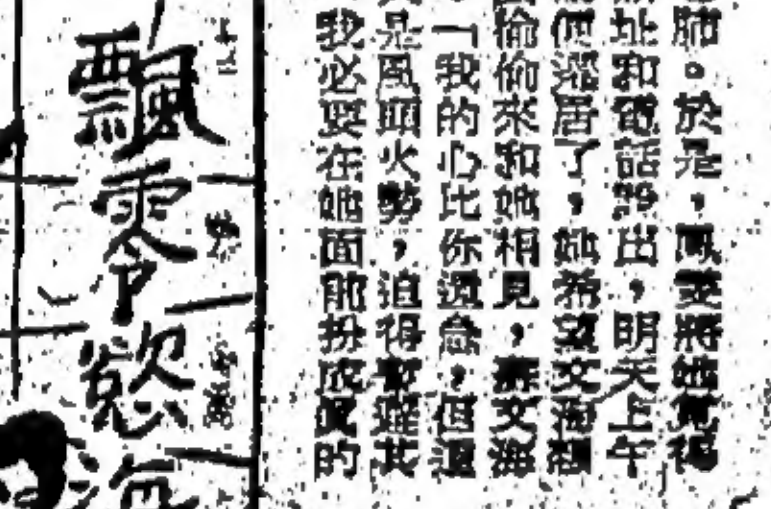 肺。於是，鳳雯將她覓得
址和電話說出，明天上午
便遷居了，她希望文海
偷偷來和她相見，蘇文海
「我的心比你還急，但這
是風頭火勢，迫得暫避其
我必要在她面前扮成真的
飄零慾海